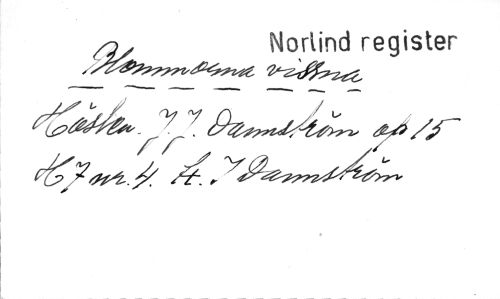 Norlind register
Blommorna vissna
Hösten. J. J. Dannström op 15
H 7 nr. 4. H. I Dannström